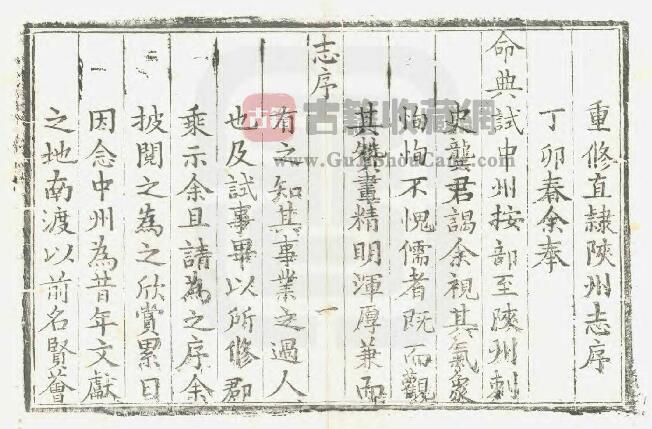 重修直隷陝州志序
丁卯春余奉
命典試中州按部至陝州刺
史龔君謁余視其氣象
恂恂不愧儒者既而觀
其贊畫精明渾厚兼而
志序
一
有之知其事業之過人
也及試事畢以所修郡
乘示余且請為之序余
披閱之為之欣賞累日
因念中州為昔年文獻
之地南渡以前名賢薈
古籍收藏網
www.GujiShouCang.com